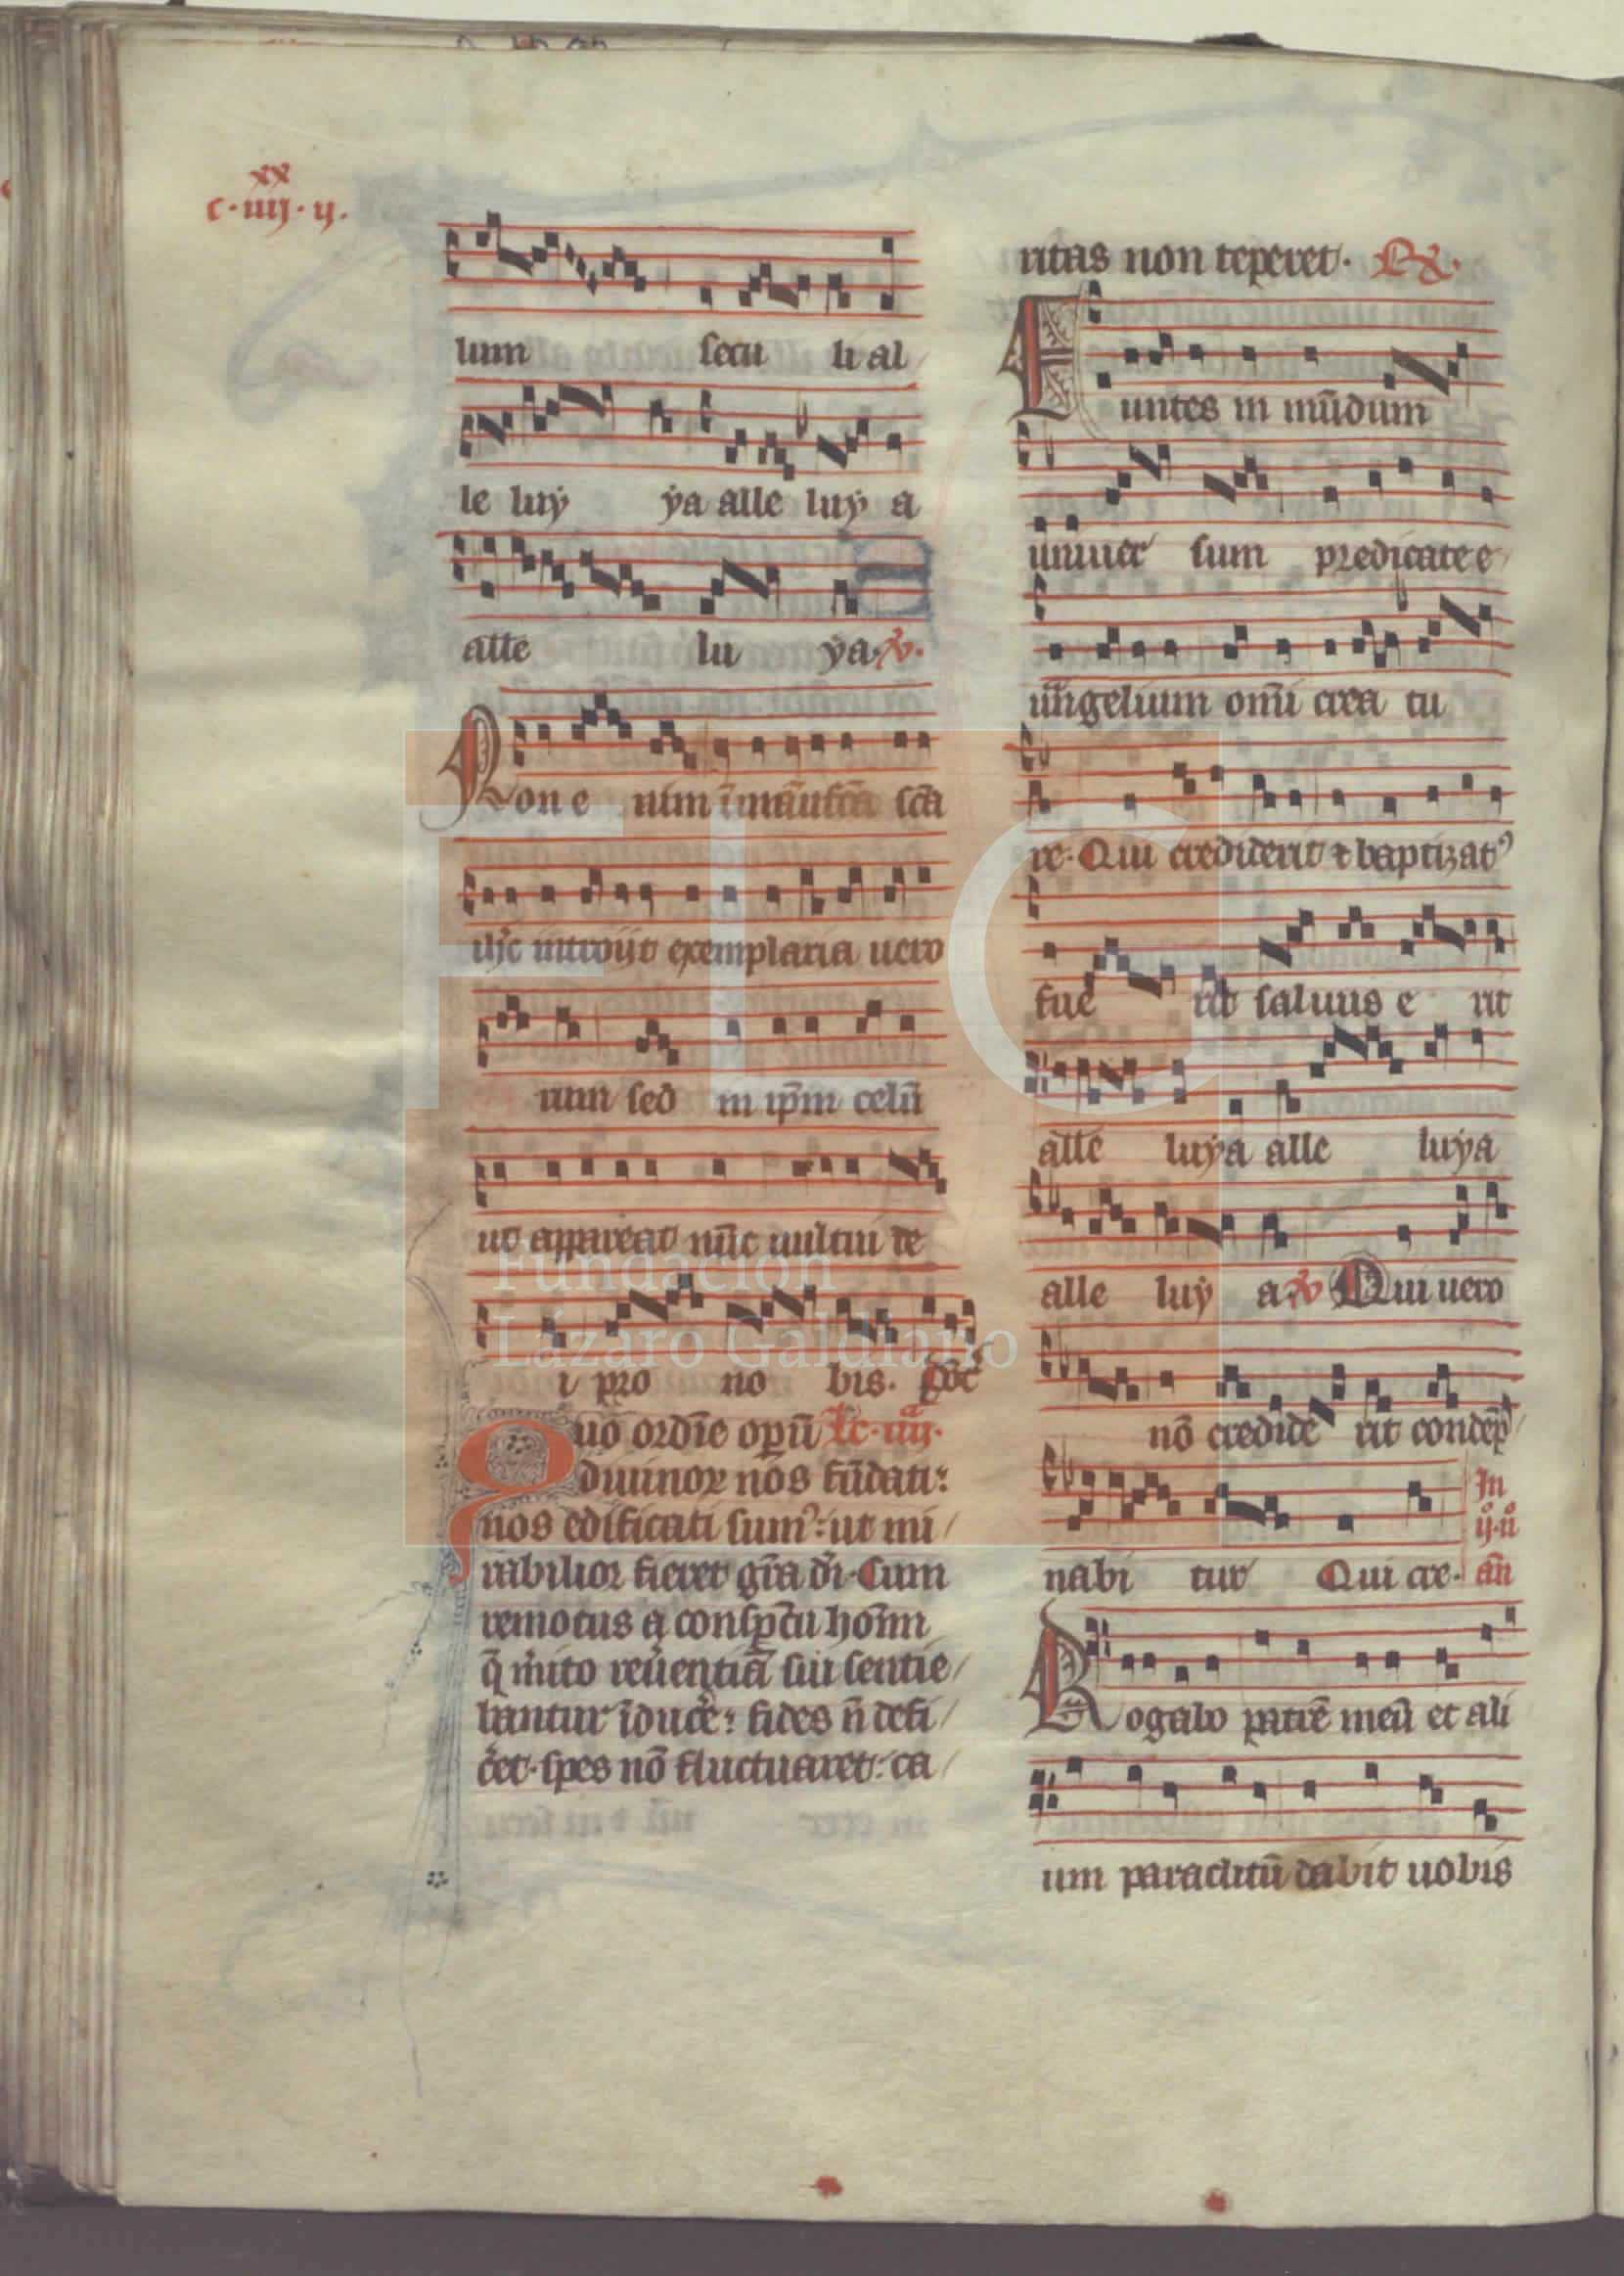 xx
c·iiij·ij.
lum secu li al
le luẏ ẏa alle luẏ a
alle lu ẏa. V.
Non e nim ī manufcā scā
ihc̄ introijt exemplaria uero
rum sed in ip̄m celū
ut appareat nūc uultui de
i pro no bis. Don̄c
Quo ordīe opūͫ Lc̄. iiij.
diuinoꝝ nos fūdati:
nos edificati sumꝰ: ut mi/
rabilior fieret gr̄a dī. Cum
remotus a conspc̄tu hoīm
q̄ m̄ito reuēntiā sui sentie/
bantur īduc̄e: fides n̄ defi/
cet. spes nō fluctuaret: ca/
ritas non teperet. R̄.
Euntes in mūdum
uniuer sum predicate e/
uāngelium omī crea tu
re. Qui crediderit ⁊ baptizatꝰ
fue rit saluus e rit
alle luẏa alle luẏa
alle luẏ a. V Qui uero
nō credide rit condēp/
nabi tur Qui cre. In ij. n̄ an̄
Rogabo patrē meū et ali
um paraclitū dabit uobis
Fundación
Lázaro Galdiano
FLG